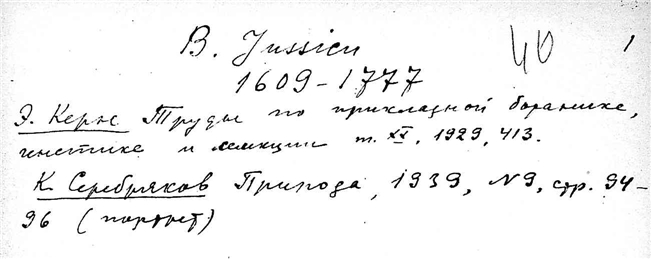 B. Jussieu 40 1
1609-1777
Э. Керн Труды по прикладной ботанике,
генетике и селекции т. XX, 1929, 413.
К. Серебряков Природа, 1939, N9, стр. 94-
96 (портрет)